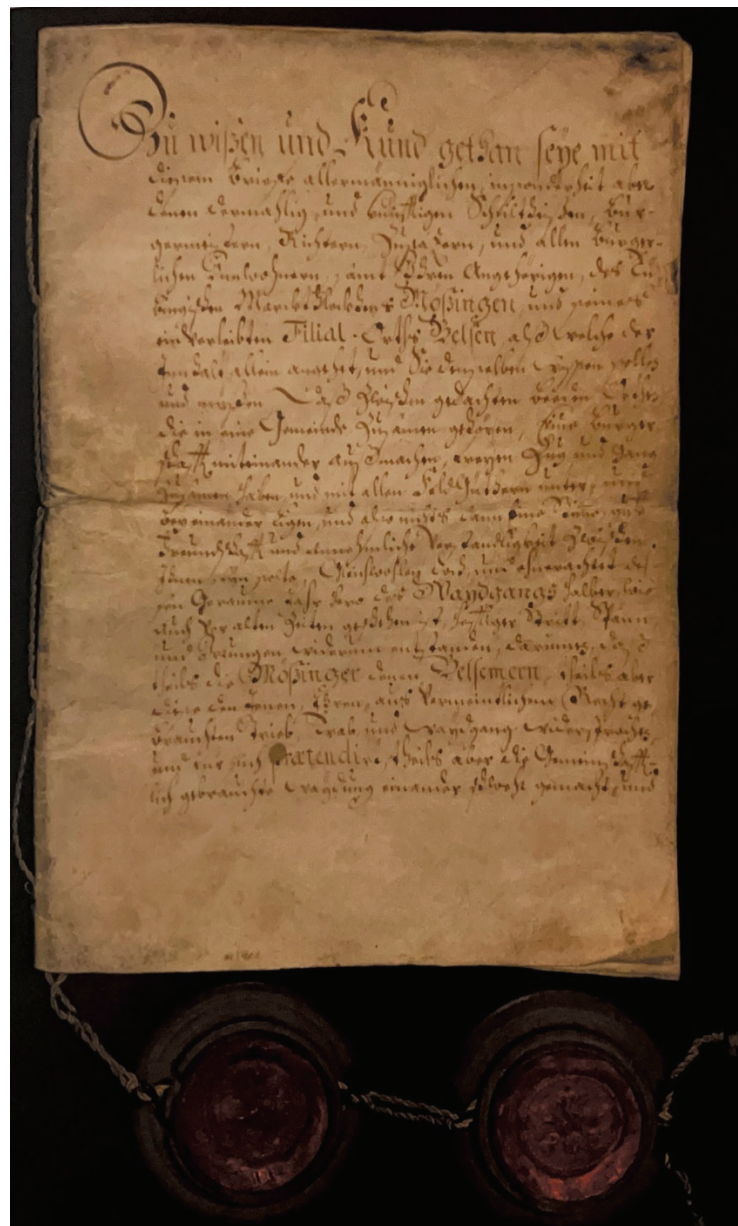 Zu wißen und Kund gethan seye mit
diesem Brieffe allermänniglichen, insonderheit aber
denen dermahlig und künfftigen Schultheißen, Bur-
germeistern, Richtern, und allen Burger-
lichen Innwohnern, samt Ihren Angehörigen, des Tü-
bingischen Marckt Fleckens Mößingen, und seines
einverleibten Filial-Orths Belsen, als welche der
Innhalt allein angehet, und Sie denselben wißen sollen
und Daß zwischen gedachten beeden Orthen
die in eine Gemeinde zusamen gehören, Eine Burger-
schafft miteinander außmachen, wegen Zug und Gang
zusamen haben, und mit allen Feld Güthern unter, und
bey einander ligen, und also nichts dann eine gute
Freundschafft und Verständligkeit zwischen
Ihnen seyn solte, und des-
sen Geraume Jahr hero des Waydgangs halber, wie
auch vor alten Zeiten geschehen ist, Stritt, Spänn
und Irrungen widerum entstanden, darum, daß
theils die Mößinger denen Belsemern, theils aber
diese den Jenen, Ihren, aus vermeintlichem Recht ge-
brauchten Trieb, Trab, und Waydgang
und vor sich prætendirt, theils aber die Gemeinschafft-
lich gebrauchte einander gemacht, und